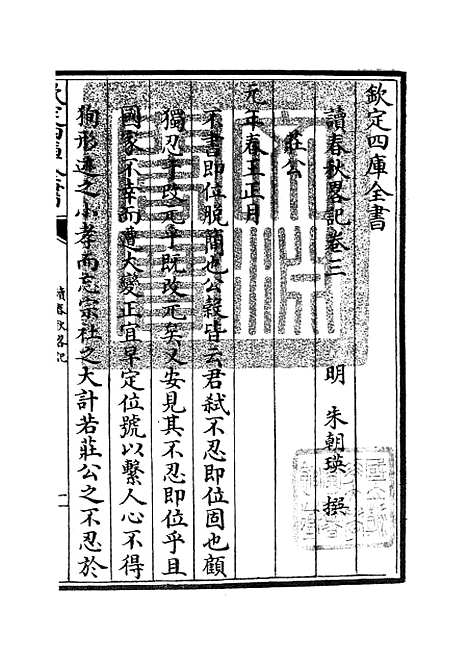 欽定四庫全書
讀春秋畧記卷三
明 朱朝瑛 撰
莊公
元年春王正月
不書即位脱簡也公穀皆云君弑不忍即位固也顧
獨忍于改元乎既改元矣又安見其不忍即位乎且
國家不幸而遭大變正宜早定位號以繫人心不得
狥形迹之小孝而忘宗社之大計若莊公之不忍於
欽定四庫全書
讀春秋畧記